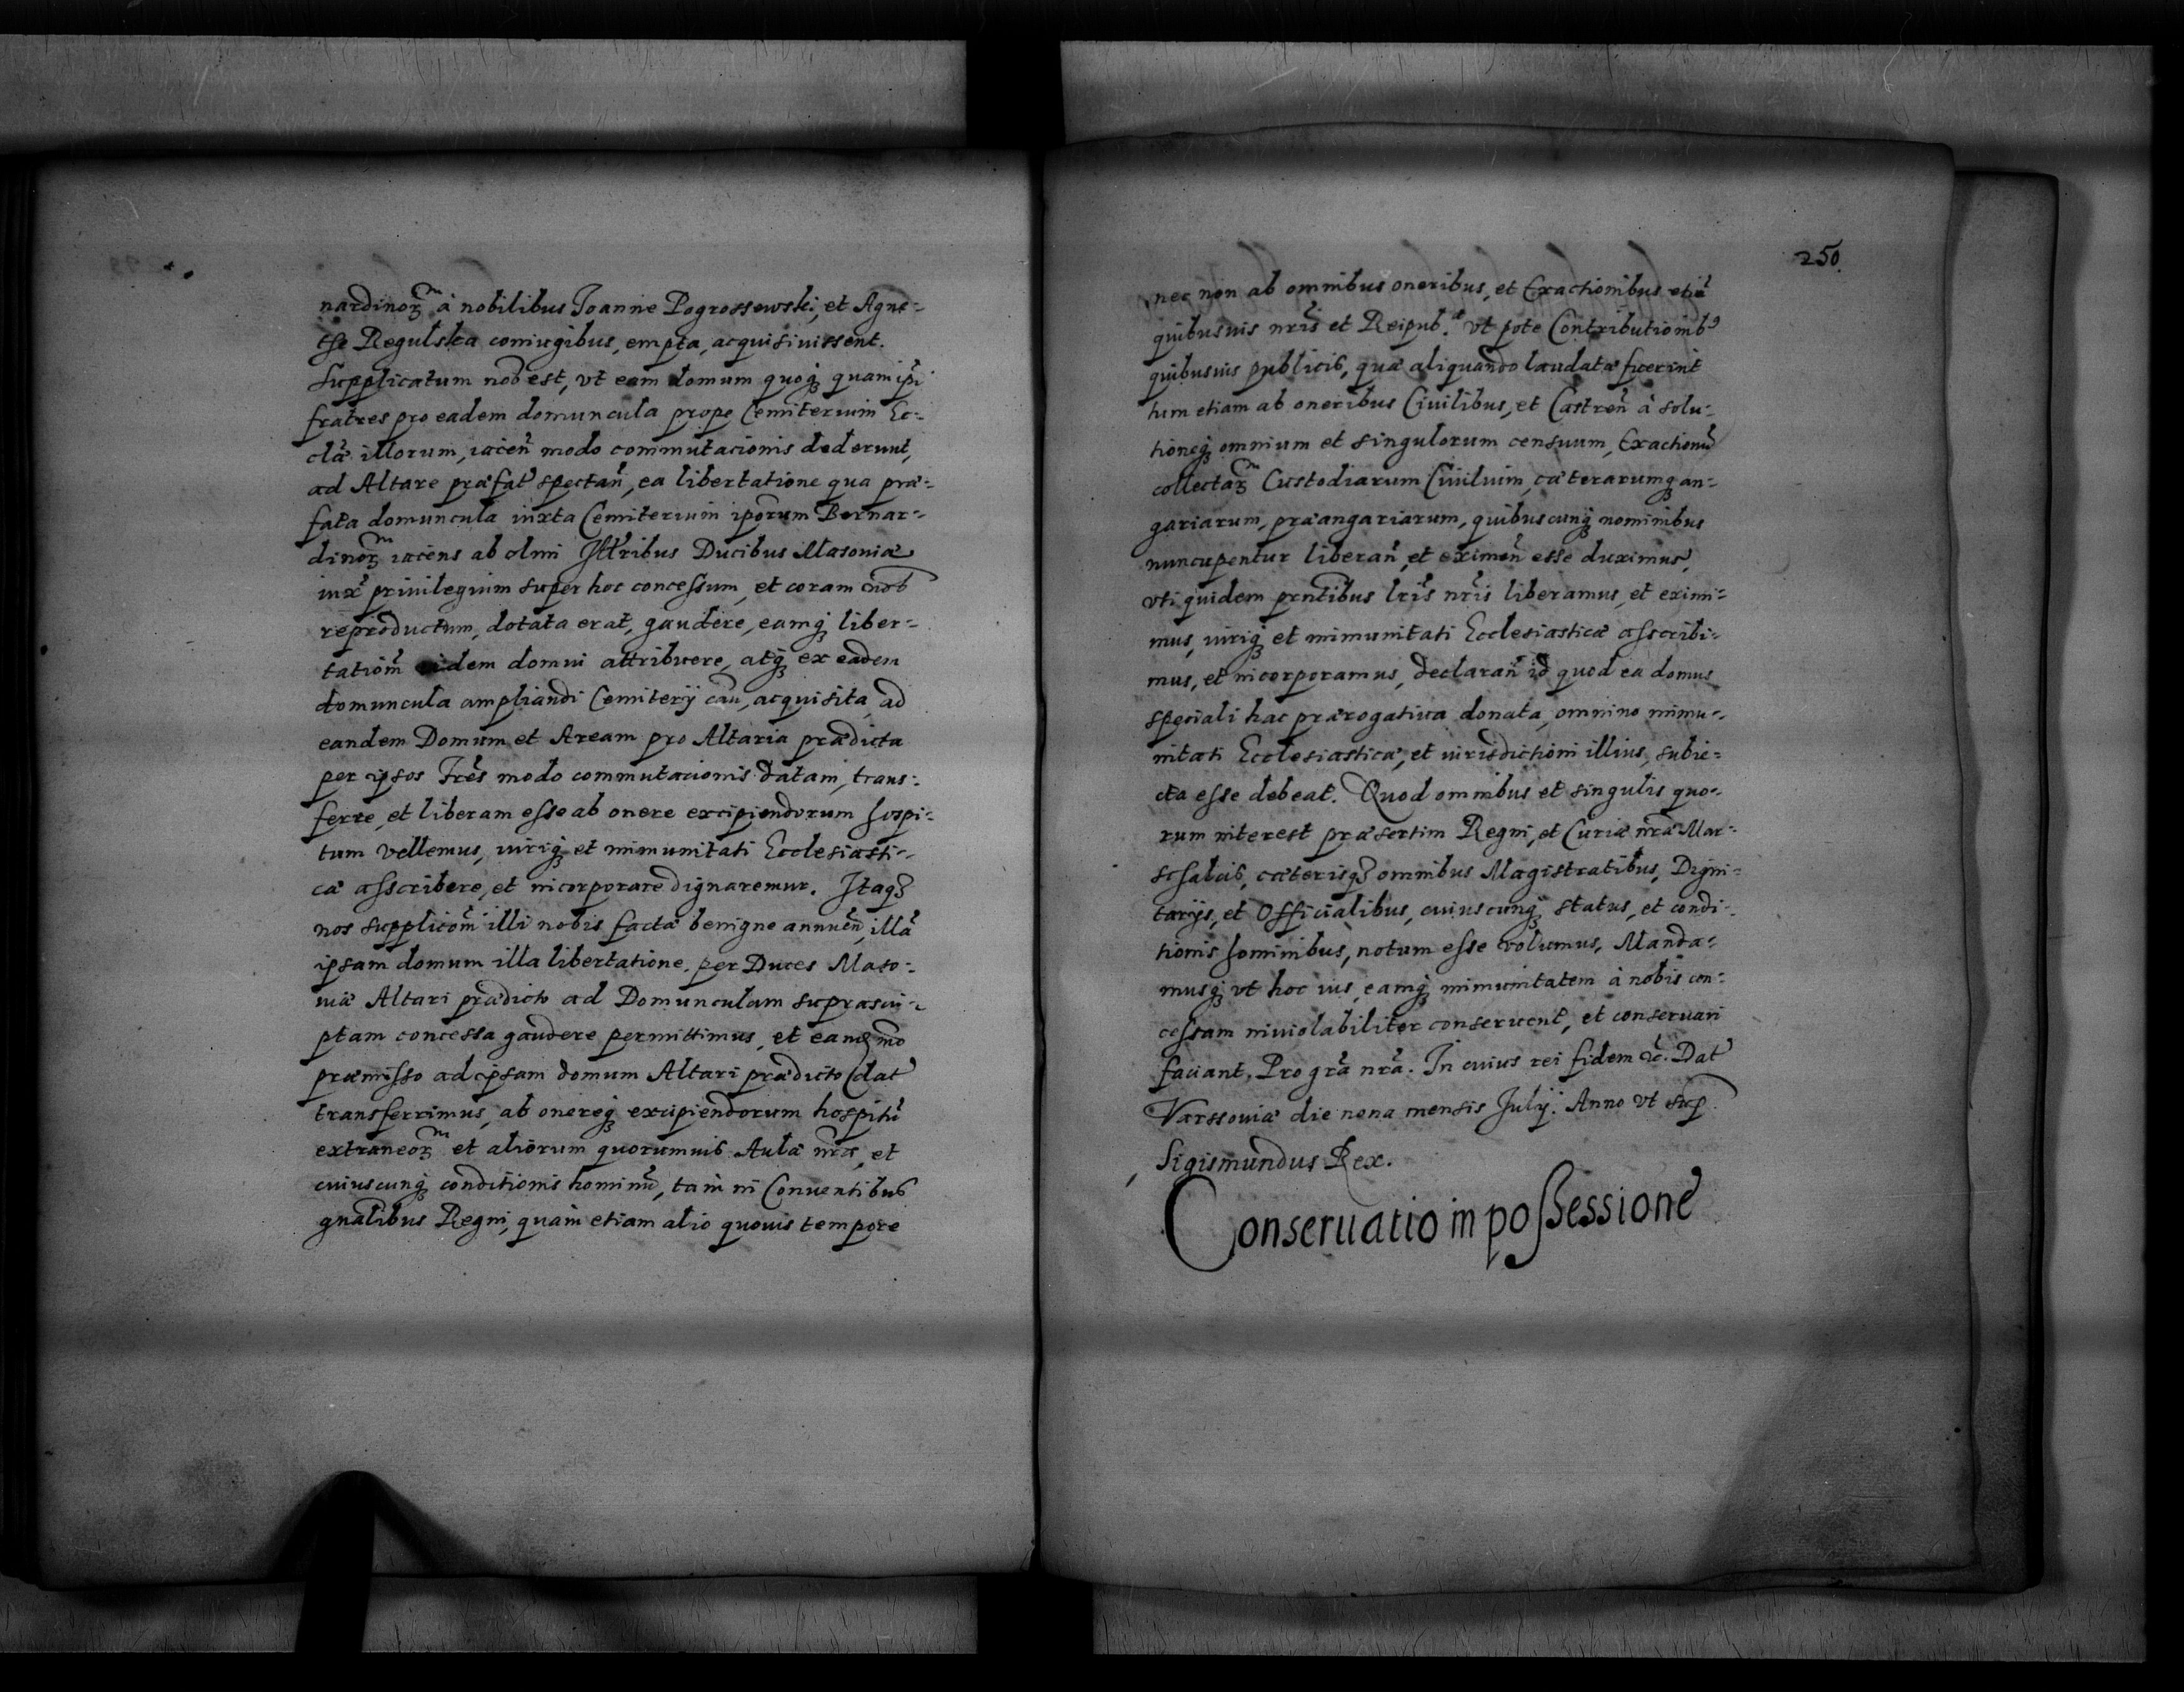 nardinoꝝ à nobilibus Joanne Pogrossewski, et Agne-
tse Regulska coniugibus, empta, acquisiuissent.
Supplicatum nob est, vt eam domum quoq quam ipi
fratres pro eadem domuncula prope Cemiterium Ec-
clæ illorum, iacen modo commutacionis dederunt,
ad Altare præfat spectan, ea libertatione qua præ-
fata domuncula iuxta Cemiterium iporum Bernar-
dinoꝝ iacens ab olim Illribus Ducibus Masouiæ
iux priuilegium super hoc concessum, et coram nob
reproductum, dotata erat, gaudere, eamq liber-
tation eidem domui attribuere, atq ex eadem
domuncula ampliandi Cemiterij cau, acquisita, ad
eandem Domum et Aream pro Altaria prædicta
per ipsos Fres modo commutacionis datam, trans-
ferre, et liberam esse ab onere excipiendorum hospi-
tum vellemus, iuriq et immunitati Ecclesiasti-
cæ asscribere, et incorporare dignaremur. Itaq
nos supplicom illi nobis factæ benigne annuen, illa
ipsam domum illa libertatione, per Duces Maso-
uiæ Altari prædicto ad Domunculam suprascri-
ptam concessa gaudere permittimus, et eand mo
præmisso ad ipsam domum Altari prædicto dat
transferrimus, ab onereq excipiendorum hospitu
extraneoꝝ et aliorum quorumuis Aulæ nræ, et
cuiuscunq conditionis hominu, tam in Conuentibus
gnalibus Regni, quam etiam alio quouis tempore
250.
nec non ab omnibus oneribus, et Exactionibus etia
quibusuis nris et Reipub. vt pote Contributionib
quibusuis publicis, quæ aliquando laudatæ fuerint
tum etiam ab oneribus Ciuilibus, et Castren à solu-
tioneq omnium et singulorum censuum, Exactionu
collectaꝝ Custodiarum Ciuilium, cæterarumq an-
gariarum, præangariarum, quibuscunq nominibus
nuncupentur liberan, et eximen esse duximus,
vti quidem pntibus lris nris liberamus, et eximi-
mus, iuriq et immunitati Ecclesiasticæ asscribi-
mus, et incorporamus, declaran id quod ea domus
speciali hac prærogatiua donata, omnino immu-
nitati Ecclesiasticæ, et iurisdictioni illius, subie-
cta esse debeat. Quod omnibus et singulis quo-
rum interest præsertim Regni, et Curiæ nræ Mar-
schalcis, cæterisq omnibus Magistratibus, Digni-
tarijs, et Officialibus, cuiuscunq status, et condi-
tionis hominibus, notum esse volumus, Manda-
musq vt hoc ius, eamq immunitatem à nobis con-
cessam inuiolabiliter conseruent, et conseruari
faciant, Pro gra nra. In cuius rei fidem &c. Dat
Varssouiæ die nona mensis Julij. Anno vt sup
Sigismundus Rex.
Conseruatio in possessione